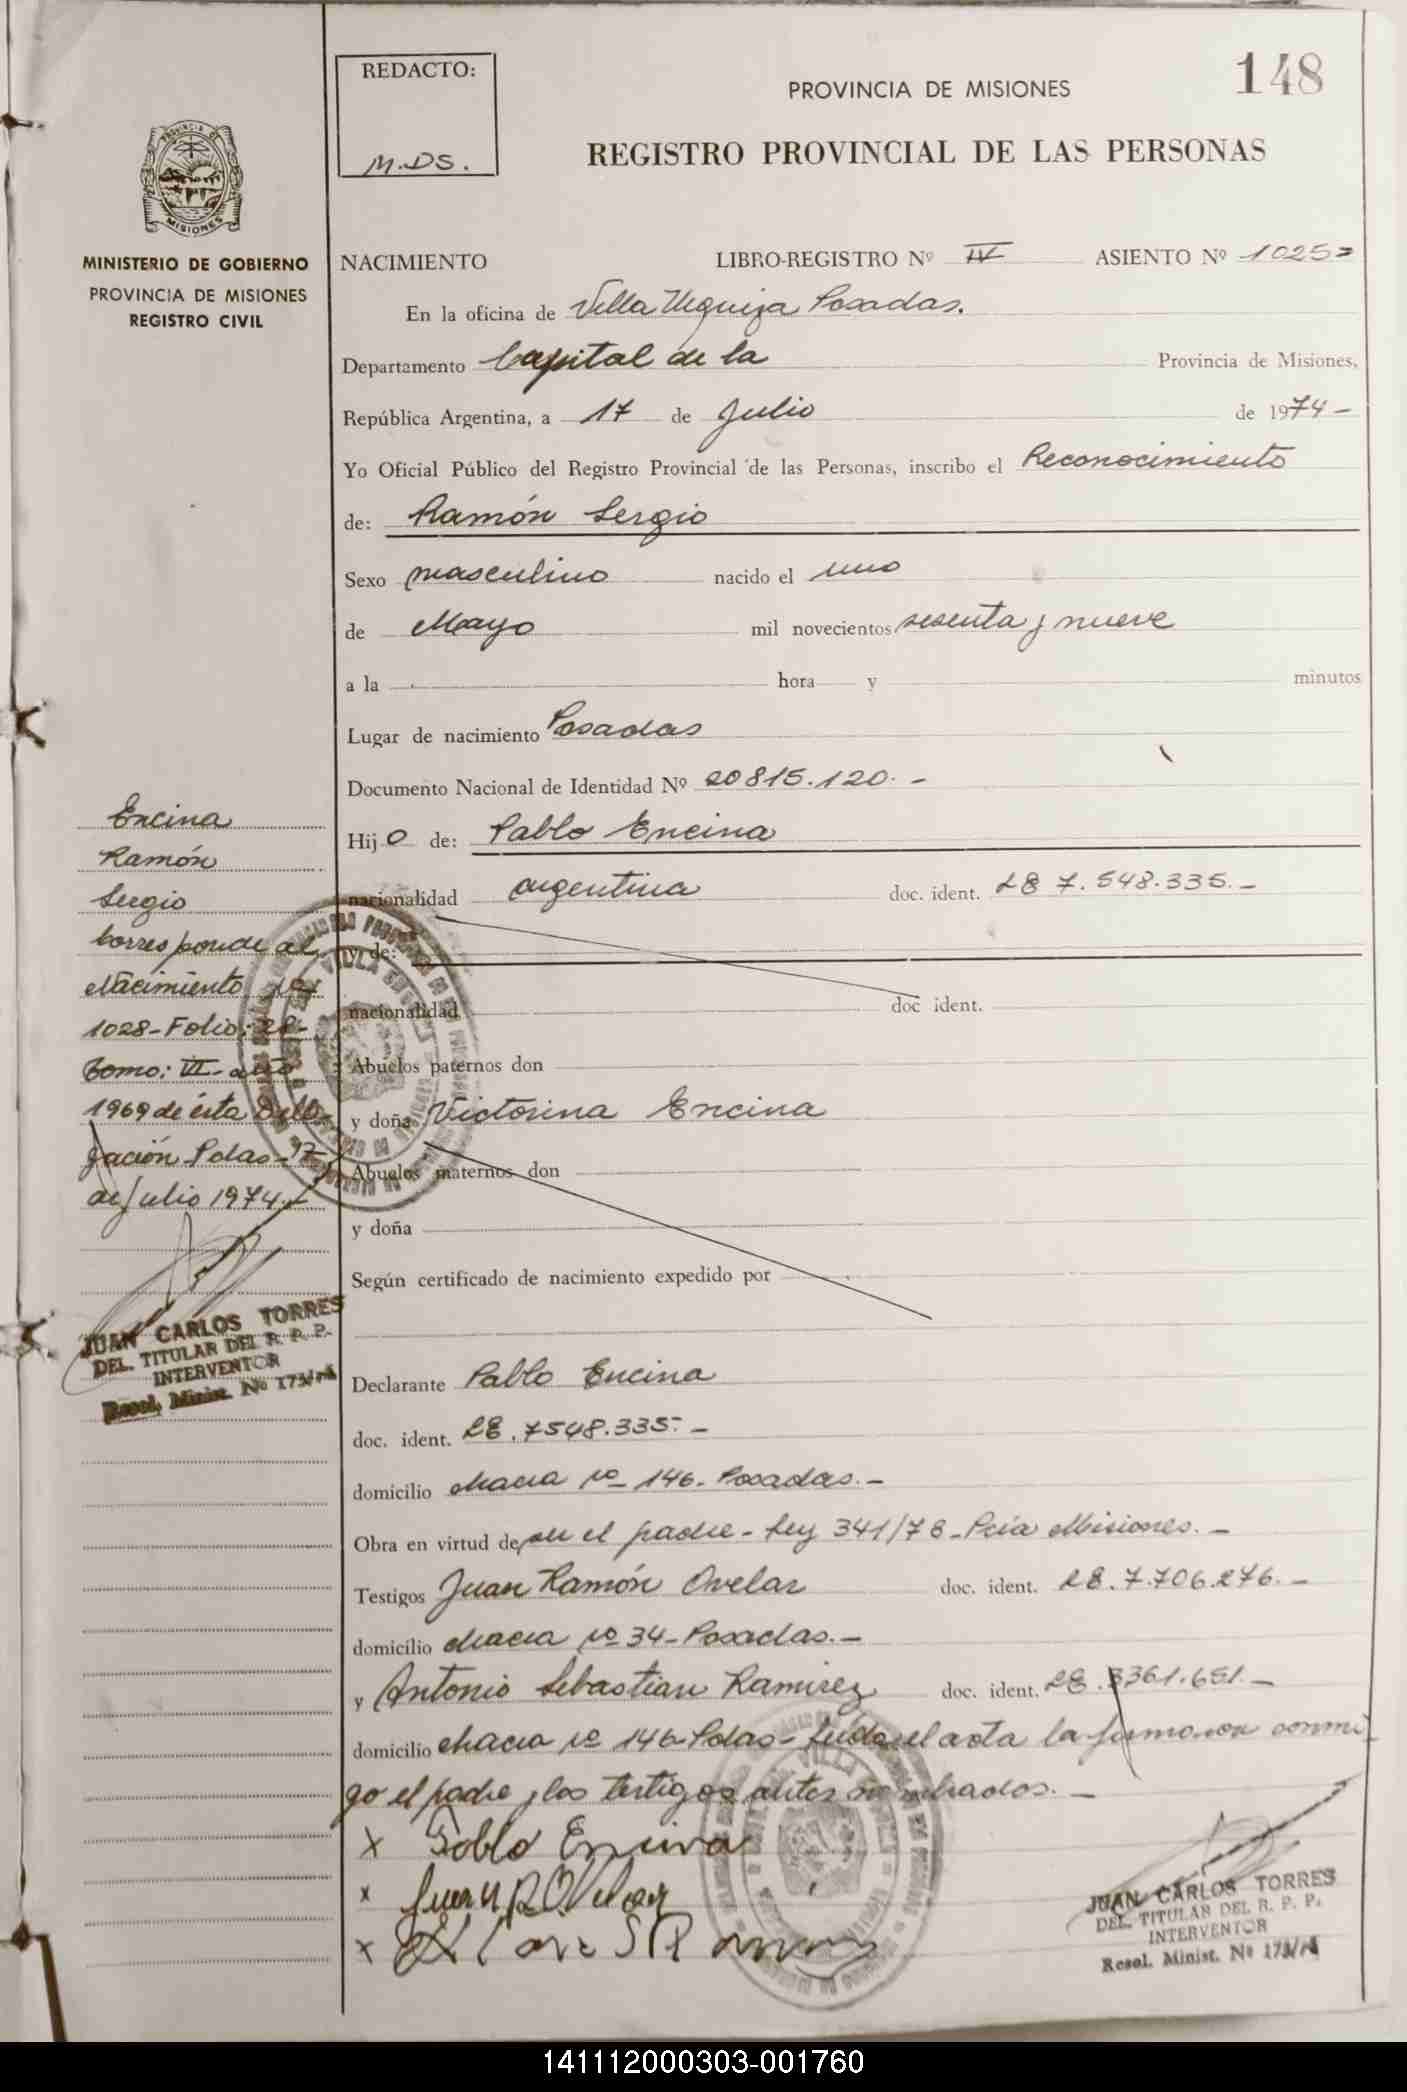 REDACTO:
M.DS.
PROVINCIA DE MISIONES
148
REGISTRO PROVINCIAL DE LAS PERSONAS
PROVINCIA DE
MISIONES
MINISTERIO DE GOBIERNO
PROVINCIA DE MISIONES
REGISTRO CIVIL
NACIMIENTO LIBRO-REGISTRO Nº IV ASIENTO Nº 1025
En la oficina de Villa Urquiza Posadas.
Departamento Capital de la Provincia de Misiones,
República Argentina, a 17 de Julio de 1974-
Yo Oficial Público del Registro Provincial de las Personas, inscribo el Reconocimiento
de: Ramón Sergio
Sexo masculino nacido el uno
de Mayo mil novecientos sesenta y nueve
a la hora y minutos
Lugar de nacimiento Posadas
Documento Nacional de Identidad Nº 20815.120.-
Hijo de: Pablo Encina
nacionalidad argentina doc. ident. LE 7.548.335.-
y de:
nacionalidad doc ident.
Abuelos paternos don
y doña Victorina Encina
Abuelos maternos don
y doña
Según certificado de nacimiento expedido por
Declarante Pablo Encina
doc. ident. LE.7548.335.-
domicilio chacra nº 146-Posadas.-
Obra en virtud de ser el padre-Ley 341/78-Pcia Misiones.-
Testigos Juan Ramón Ovelar doc. ident. LE.7.706.276.-
domicilio chacra nº 34-Posadas.-
y Antonio Sebastian Ramirez doc. ident. LE. 3361.651.-
domicilio chacra nº 146-Pdas-Leida el acta la firmaron conmi-
go el padre y los testigos antes nombrados.-
x Pablo Encina
x Juan R Ovelar
x
Encina
Ramón
Sergio
Corresponde al
Nacimiento nº
1028-Folio: 28-
Tomo: VI-año
1969 de ésta Dele
gación Pdas-17
de Julio 1974.-
JUAN CARLOS TORRES
DEL. TITULAR DEL R. P. P.
INTERVENTOR
Resol. Minist. Nº 173/74
JUAN CARLOS TORRES
DEL. TITULAR DEL R. P. P.
INTERVENTOR
Resol. Minist. Nº 173/74
141112000303-001760